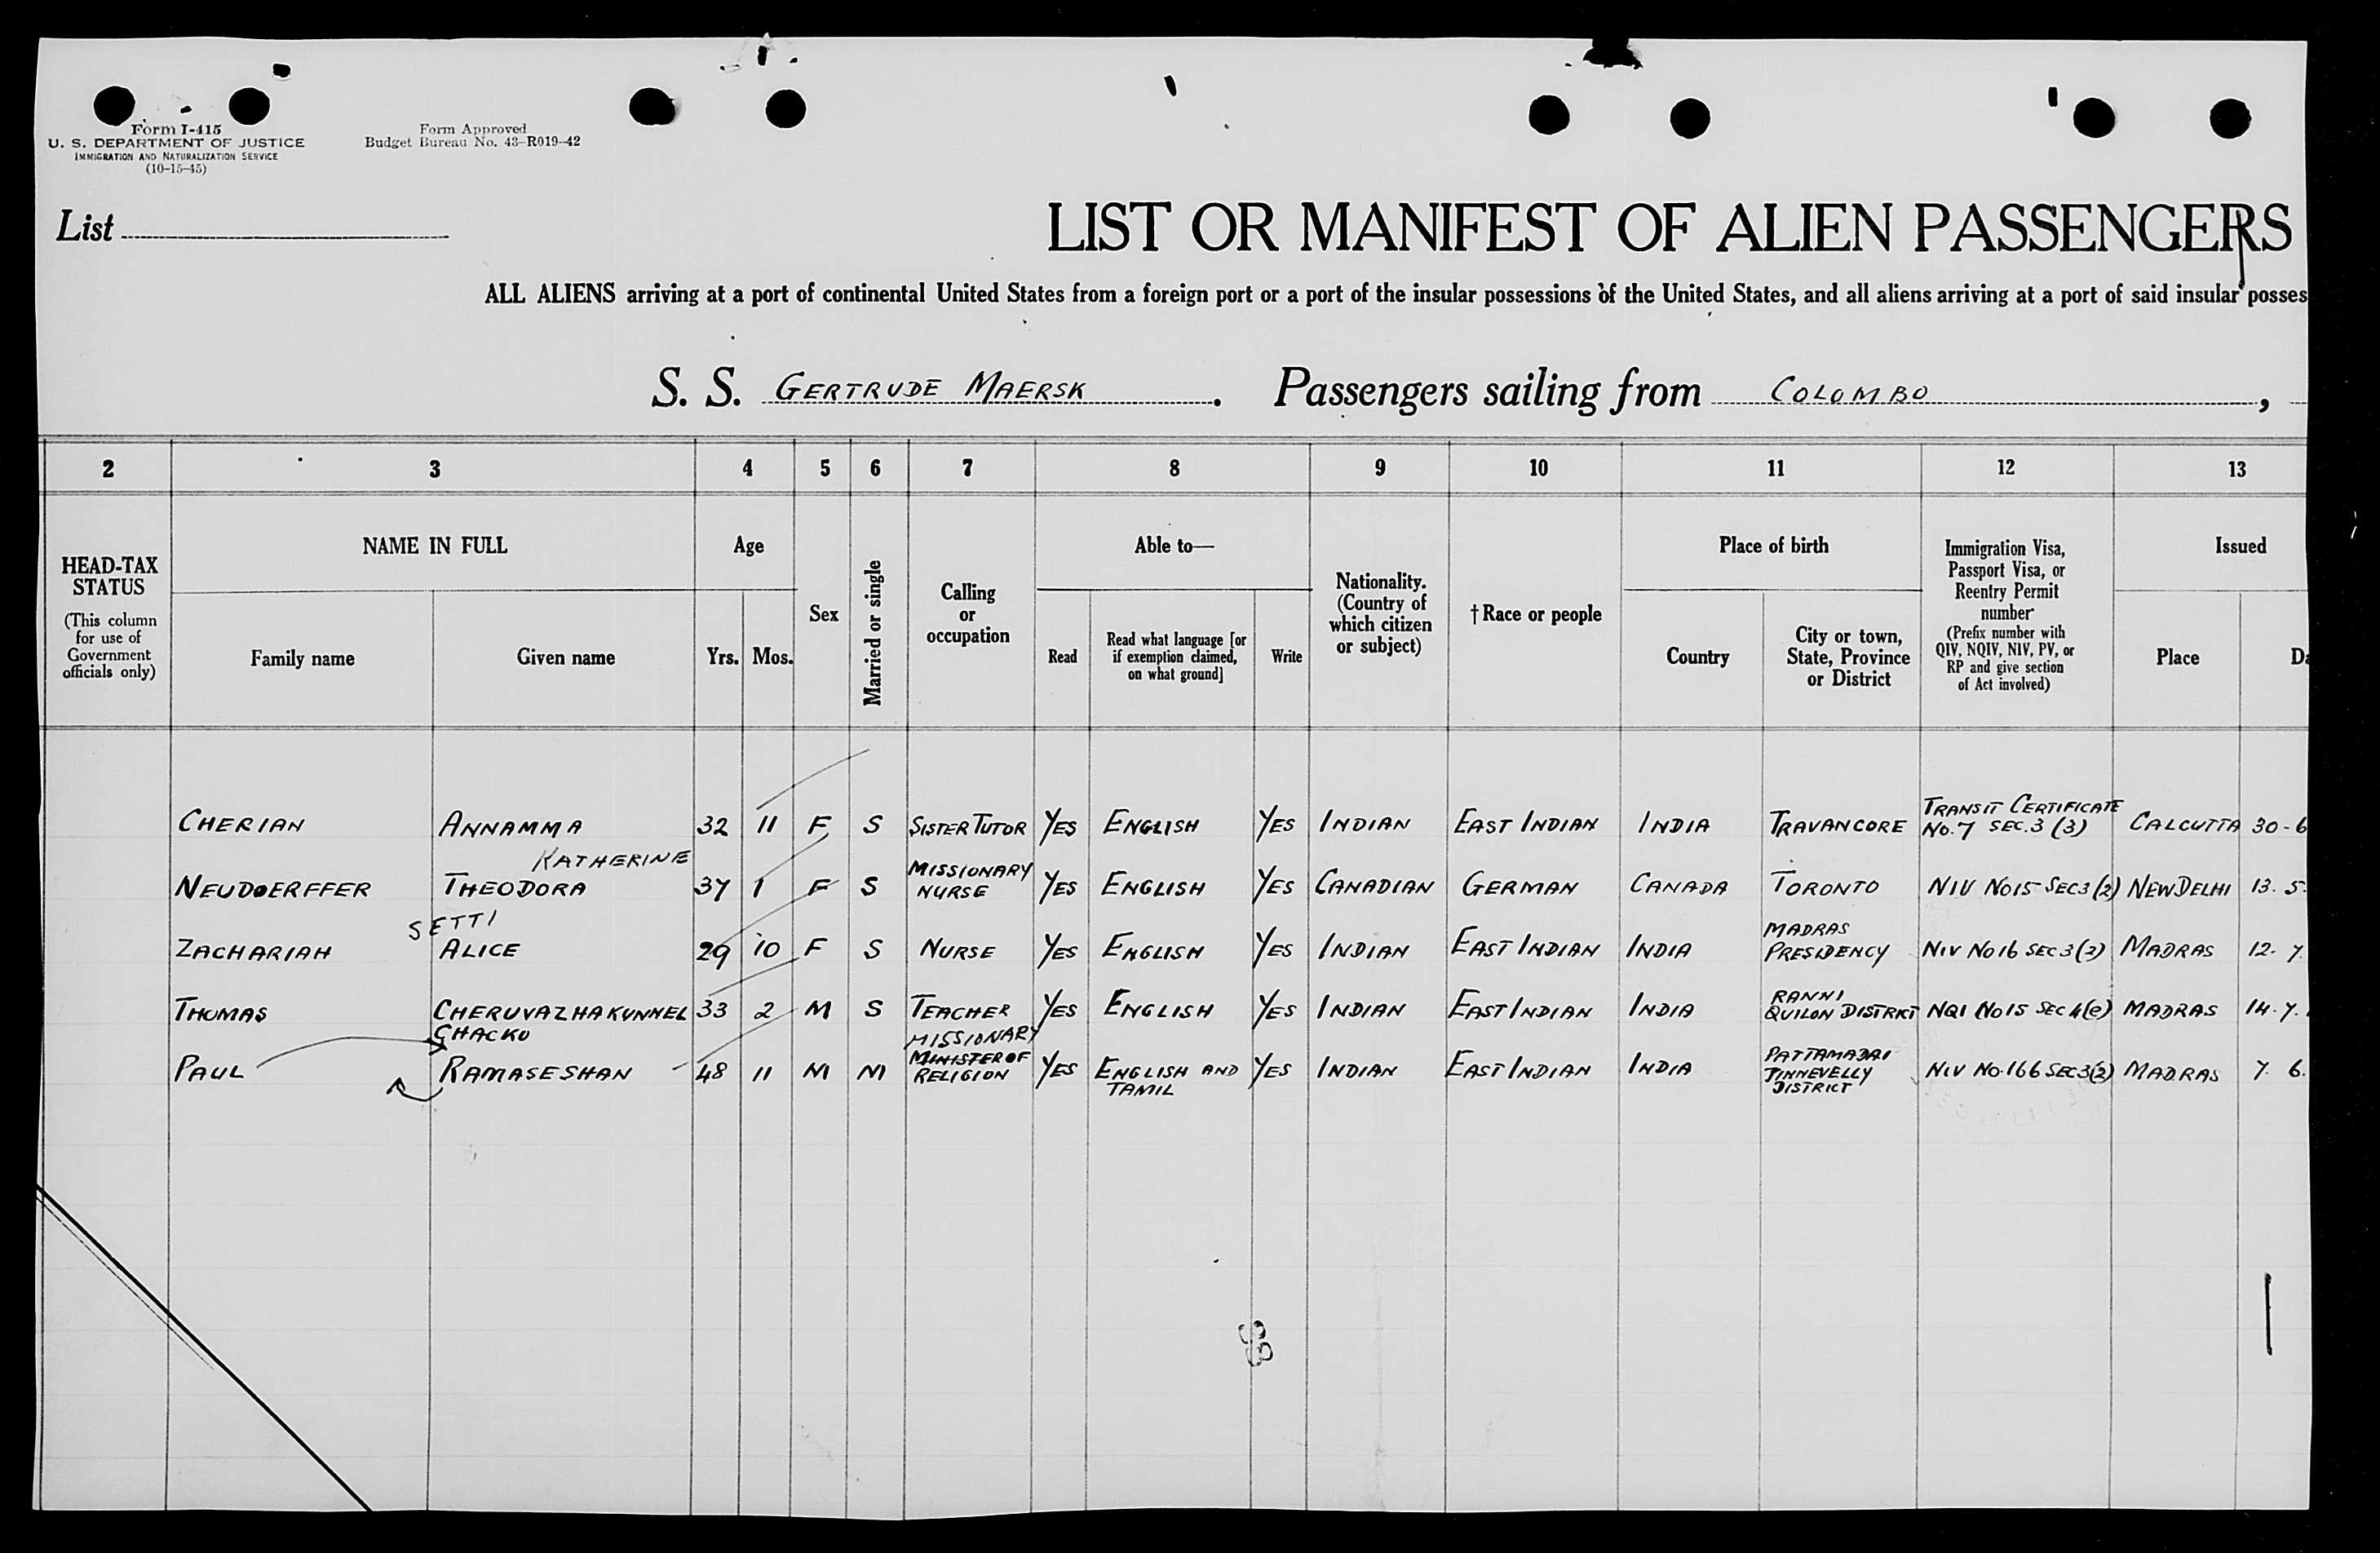 Form I-415
U. S. DEPARTMENT OF JUSTICE
IMMIGRATION AND NATURALIZATION SERVICE
(10-15-45)
Form Approved
Budget Bureau No. 43-R019-42
List
LIST OR MANIFEST OF ALIEN PASSENGERS
ALL ALIENS arriving at a port of continental United States from a foreign port or a port of the insular possessions of the United States, and all aliens arriving at a port of said insular posses
S. S. GERTRUDE MAERSK. Passengers sailing from COLOMBO,
2 3 4 5 6 7 8 9 10 11 12 13
HEAD-TAX
STATUS
(This column
for use of
Government
officials only)
NAME IN FULL
Family name Given name
Age
Yrs. Mos.
Sex
Married or single
Calling
or
occupation
Able to—
Read
Read what language [or
if exemption claimed,
on what ground]
Write
Nationality.
(Country of
which citizen
or subject)
† Race or people
Place of birth
Country
City or town,
State, Province
or District
Immigration Visa,
Passport Visa, or
Reentry Permit
number
(Prefix number with
QIV, NQIV, NIV, PV, or
RP and give section
of Act involved)
Issued
Place
Da
TRANSIT CERTIFICATE
CHERIAN ANNAMMA 32 11 F S SISTER TUTOR YES ENGLISH YES INDIAN EAST INDIAN INDIA TRAVANCORE NO. 7 SEC. 3 (3) CALCUTTA 30-6
KATHERINE MISSIONARY
NEUDOERFFER THEODORA 37 1 F S NURSE YES ENGLISH YES CANADIAN GERMAN CANADA TORONTO NIV NO15 SEC3(2) NEW DELHI 13. 5.
SETTI MADRAS
ZACHARIAH ALICE 29 10 F S NURSE YES ENGLISH YES INDIAN EAST INDIAN INDIA PRESIDENCY NIV NO16 SEC3(2) MADRAS 12. 7.
RANNI
THOMAS CHERUVAZHAKUNNEL 33 2 M S TEACHER YES ENGLISH YES INDIAN EAST INDIAN INDIA QUILON DISTRICT NQI NO15 SEC 4(e) MADRAS 14. 7.
CHACKO MISSIONARY
MINISTER OF PATTAMADAI
PAUL RAMASESHAN 48 11 M M RELIGION YES ENGLISH AND YES INDIAN EAST INDIAN INDIA TINNEVELLY NIV NO. 166 SEC3(2) MADRAS 7. 6.
TAMIL DISTRICT